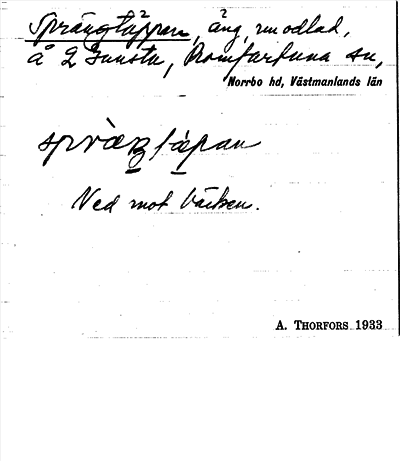 Sprängtäppan, äng, nu odlad,
å 2 Gunsta, Romfartuna sn,
Norrbo hd, Västmanlands län
spràŋtæ̀pan
Ned mot bäcken.
A. THORFORS 1933